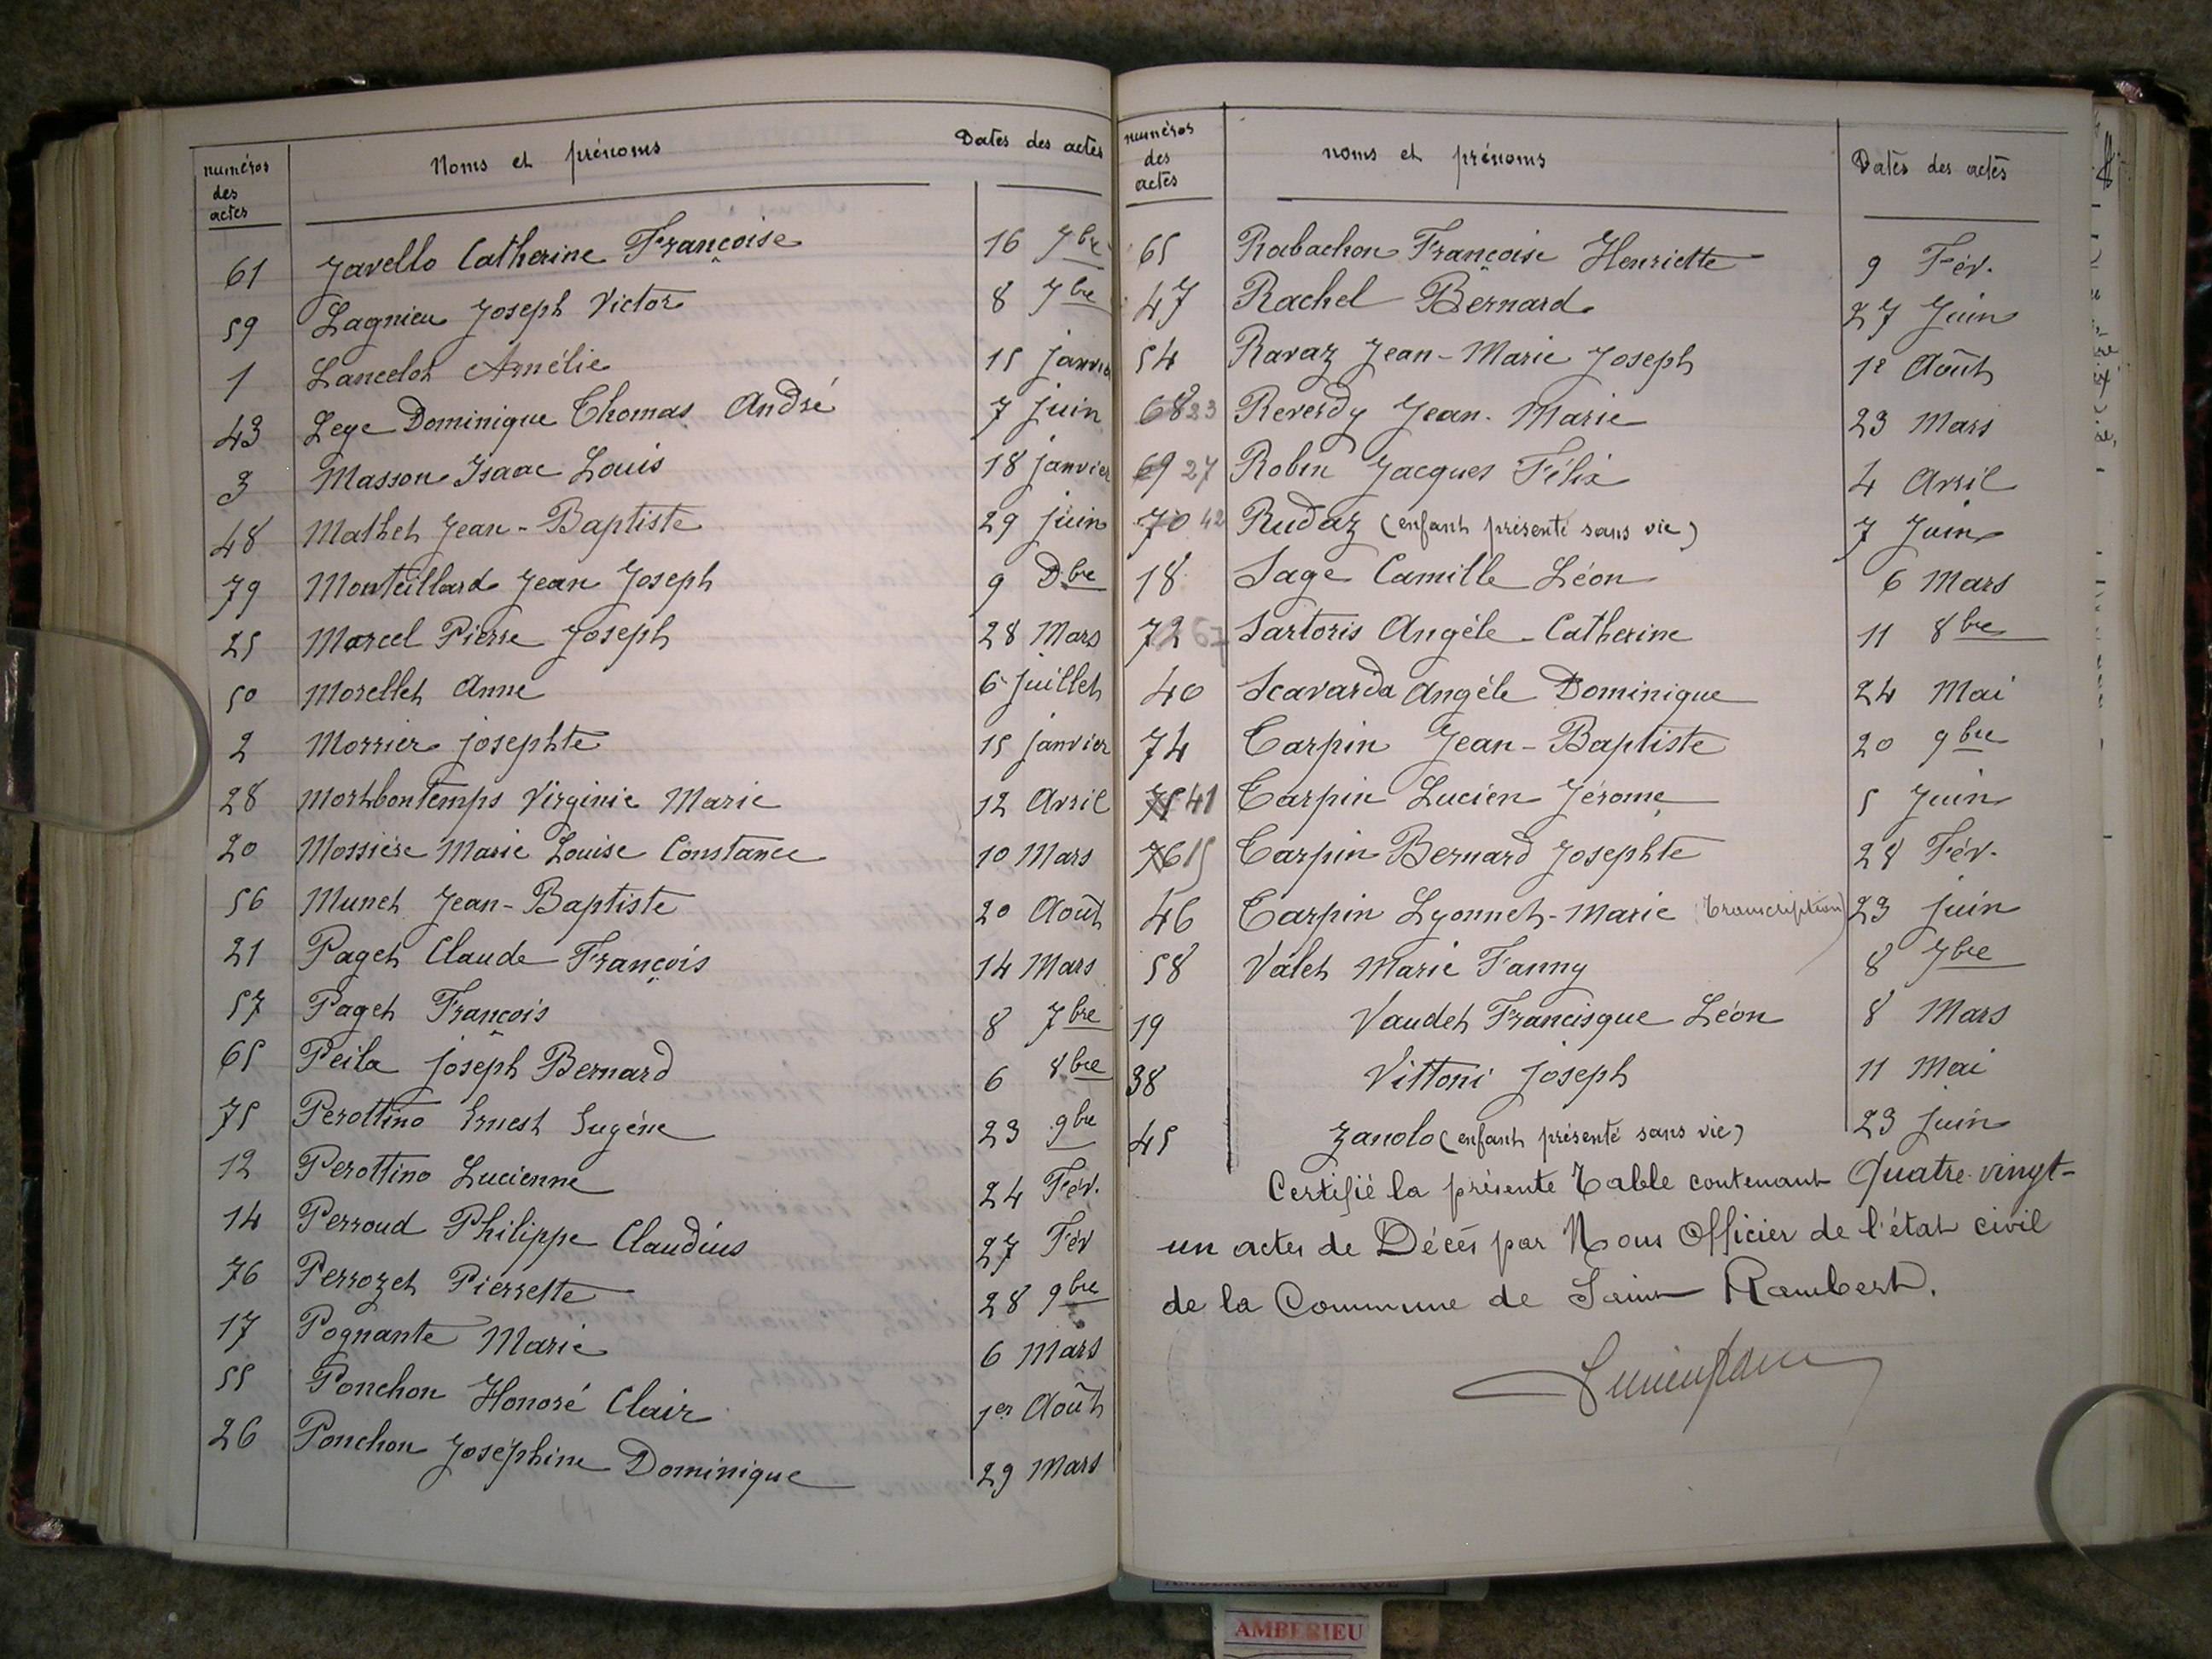 numéros des actes Noms et prénoms Dates des actes
61 Javello Catherine Françoise 16 7bre
59 Lagnieu Joseph Victor 8 7bre
1 Lancelot Amélie 15 janvier
43 Lege Dominique Thomas André 7 juin
3 Masson Isaac Louis 18 janvier
48 Mathet Jean-Baptiste 29 juin
79 Monteillard Jean Joseph 9 Dbre
25 Marcel Pierre Joseph 28 Mars
50 Morellet Anne 6 juillet
2 Morrier josephte 15 janvier
28 Mortbontemps Virginie Marie 12 Avril
20 Mossière Marie Louise Constance 10 Mars
56 Munet Jean-Baptiste 20 Août
21 Paget Claude François 14 Mars
57 Paget François 8 7bre
65 Peila joseph Bernard 6 8bre
75 Perottino Ernest Eugène 23 9bre
12 Perottino Lucienne 24 Fév.
14 Perroud Philippe Claudius 27 Fév
76 Perrozet Pierrette 28 9bre
17 Pognante Marie 6 Mars
55 Ponchon Honoré Clair 1er Août
26 Ponchon Joséphine Dominique 29 Mars
numéros des actes noms et prénoms Dates des actes
65 Rabachon Françoise Henriette 9 Fév.
47 Rachel Bernard 27 Juin
54 Ravaz Jean-Marie Joseph 1e Août
68 23 Reverdy Jean-Marie 23 Mars
69 27 Robin Jacques Félix 4 Avril
70 42 Rudaz (enfant présenté sans vie) 7 Juin
18 Sage Camille Léon 6 Mars
72 67 Sartoris Angèle-Catherine 11 8bre
40 Scavarda Angèle Dominique 24 Mai
74 Tarpin Jean-Baptiste 20 9bre
75 41 Tarpin Lucien Jérome 5 Juin
76 15 Tarpin Bernard Josephte 28 Fév.
46 Tarpin Lyonnet-Marie (transcription) 23 juin
58 Valet Marie Fanny 8 7bre
19 Vaudet Francisque Léon 8 Mars
38 Vittoni Joseph 11 Mai
45 Zanolo (enfant présenté sans vie) 23 juin
Certifié la présente Table contenant Quatre-vingt-
un actes de Décès par Nous Officier de l'état civil
de la Commune de Saint Rambert.
AMBERIEU